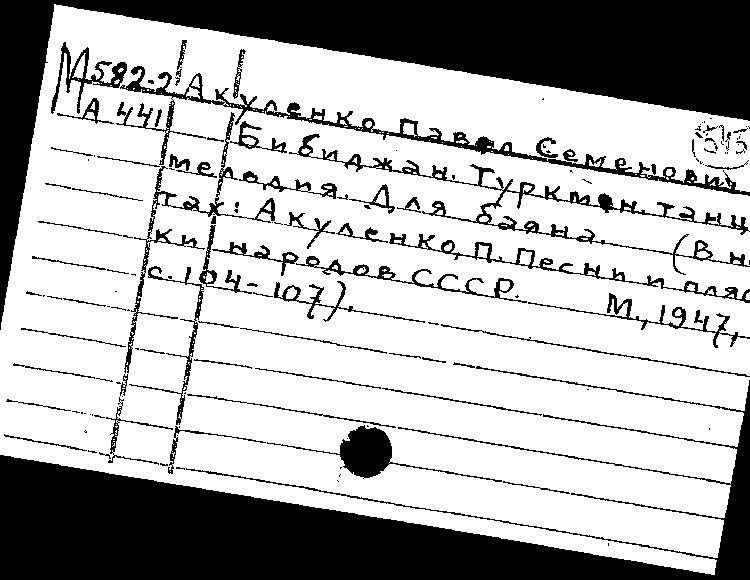 М 582-2 Акуленко, Павел Семенович 545
А 441 Бибиджан. Туркмен. танц.
мелодия. Для баяна. (В но-
тах: Акуленко, П. Песни и пляс
ки народов СССР. М., 1947,
с. 104-107).